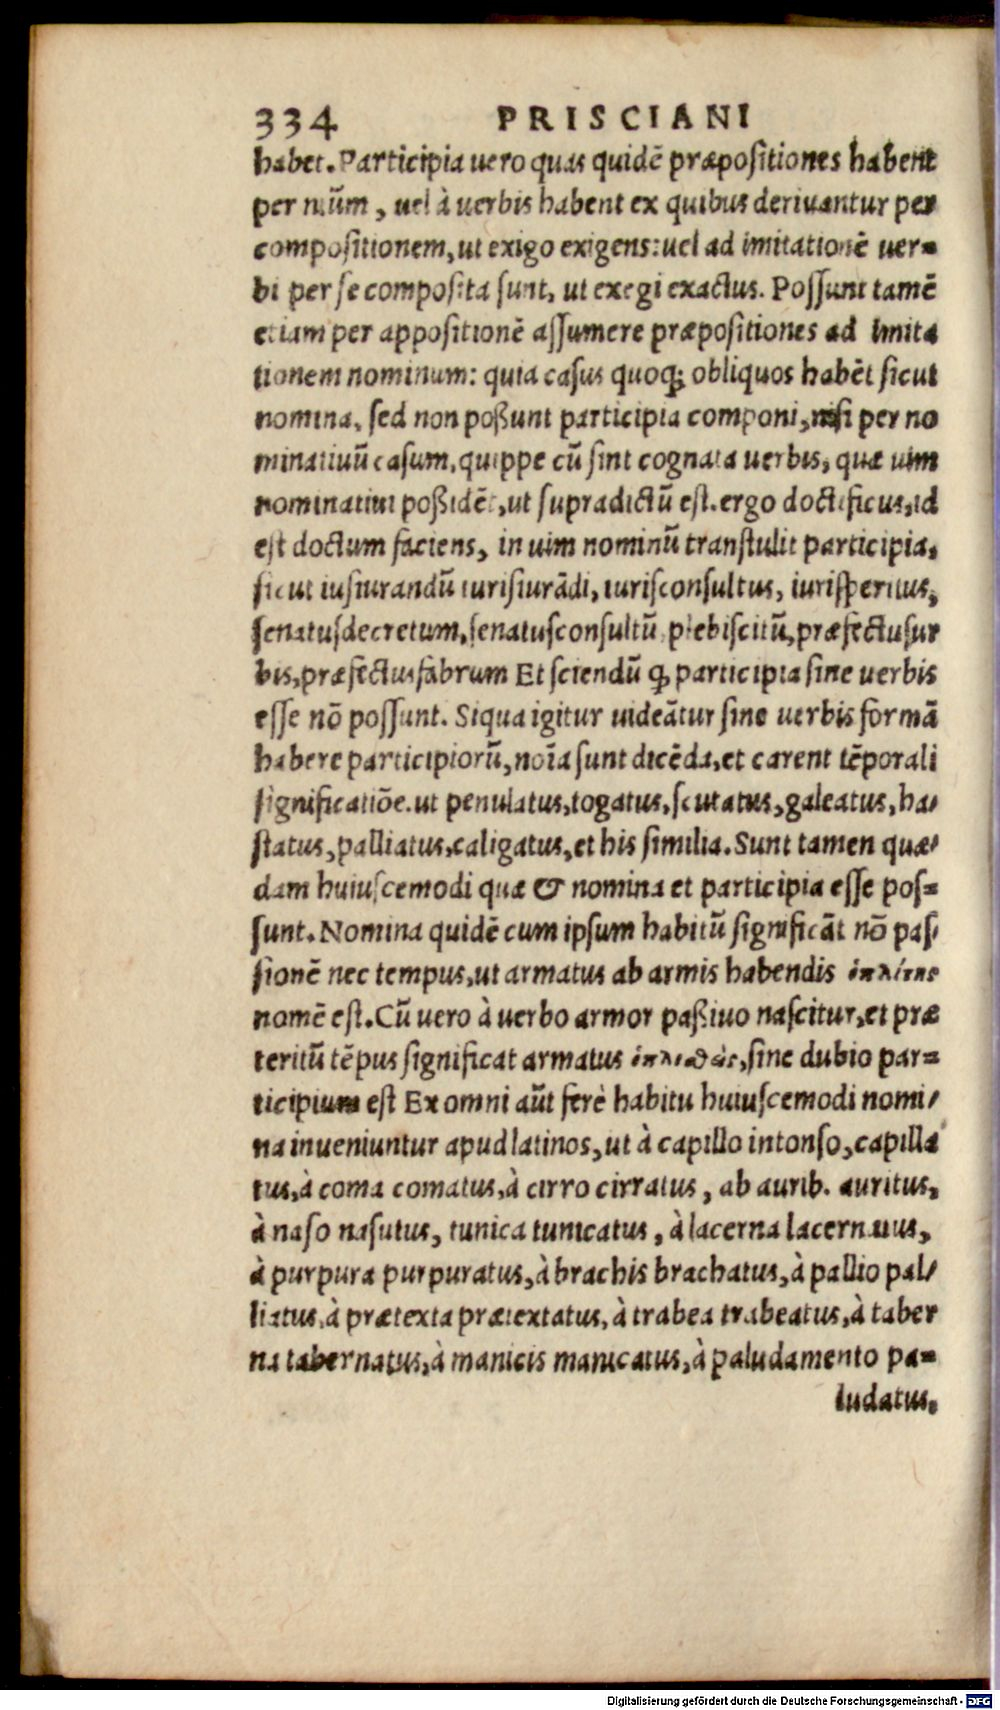 334 PRISCIANI
habet. Participia uero quas quidē præpositiones habent
per , uel à uerbis habent ex quibus deriuantur per
compositionem, ut exigo exigens: uel ad imitationē uer-
bi per se composita sunt, ut exegi exactus. Possunt tamē
etiam per appositionē assumere præpositiones ad imita
tionem nominum: quia casus quoq; obliquos habēt sicut
nomina, sed non poßunt participia componi, nisi per no
minatiuū casum, quippe cū sint cognata uerbis, quæ uim
nominatiui poßidēt, ut supradictū est. ergo doctificus, id
est doctum faciens, in uim nominū transtulit participia,
sicut iusiurandū iurisiurādi, iurisconsultus, iurisperitus,
senatusdecretum, senatusconsultū, plebiscitū, præfectusur
bis, præfectusfabrum Et sciendū q; participia sine uerbis
esse nō possunt. Siqua igitur uideātur sine uerbis formā
habere participiorū, noīa sunt dicēda, et carent tēporali
significatiōe. ut penulatus, togatus, scutatus, galeatus, ha-
status, palliatus, caligatus, et his similia. Sunt tamen quæ-
dam huiuscemodi quæ & nomina et participia esse pos-
sunt. Nomina quidē cum ipsum habitū significāt nō pas-
sionē nec tempus, ut armatus ab armis habendis ὁπλίτης
nomē est. Cū uero à uerbo armor paßiuo nascitur, et præ
teritū tēpus significat armatus ὁπλισθὰς, sine dubio par-
ticipium est Ex omni aūt ferè habitu huiuscemodi nomi-
na inueniuntur apud latinos, ut à capillo intonso, capilla
tus, à coma comatus, à cirro cirratus, ab aurib. auritus,
à naso nasutus, tunica tunicatus, à lacerna lacernatus,
à purpura purpuratus, à brachis brachatus, à pallio pal-
liatus, à prætexta prætextatus, à trabea trabeatus, à taber
na tabernatus, à manicis manicatus, à paludamento pa-
ludatus,
Digitalisierung gefördert durch die Deutsche Forschungsgemeinschaft - DFG